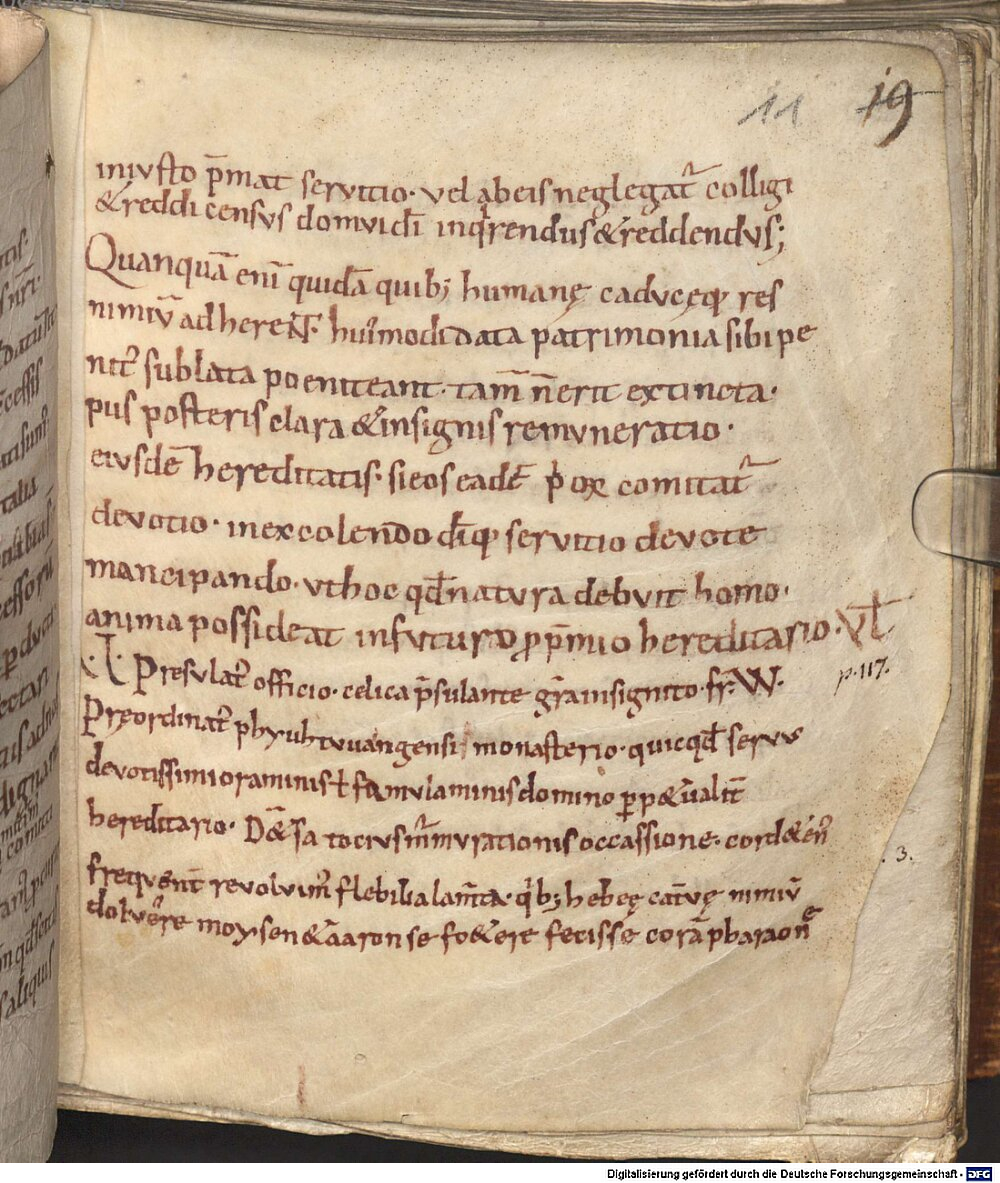 11 19
iniusto p̄mat servitio· vel ab eis neglegat᷑ colligi
& reddi census domui dī inq̇rendus & reddendus;
Quanquā enī quidā quib; humanę caducęq; res
nimiū adherent· hui᷑modi data patrimonia sibi pe
nit᷑ sublata poeniteant· tam̄ n̄ erit extincta·
pus posteris clara & insignis remuneratio·
eiusdē hereditatis· si eos eadē p̄orꝝ comitat᷑
devotio· in excolendo dīq; servitio devote
mancipando· ut hoc qđ natura debuit homo·
anima possideat in futuro ꝓ p̄mio hereditario· VŁ
.I. Presulat᷑ officio· celica p̄sulante gr̄a insignito· fr̄· W·
p. 117.
Pręordinat᷑ pbr uhtuuangensi monasterio· quicqđ servu
devotissimi oraminis ł famulaminis domino ꝑp& ualit̄
hereditario· D& sa tocius m̄murationis occassione· cord& en̄
.3.
frequent̄ revolvim᷑ flebilia lam̄ta· q̇b; hebeę cat̄vę nimiū
doluere moysen & aaron se foetere fecisse corā pharaonē
Digitalisierung gefördert durch die Deutsche Forschungsgemeinschaft - DFG